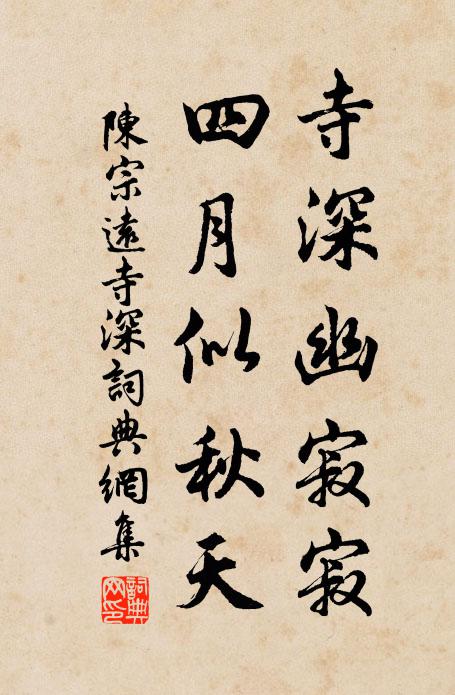 寺深幽寂寂
四月似秋天
陳宗遠寺深詞典網集
詞典網印